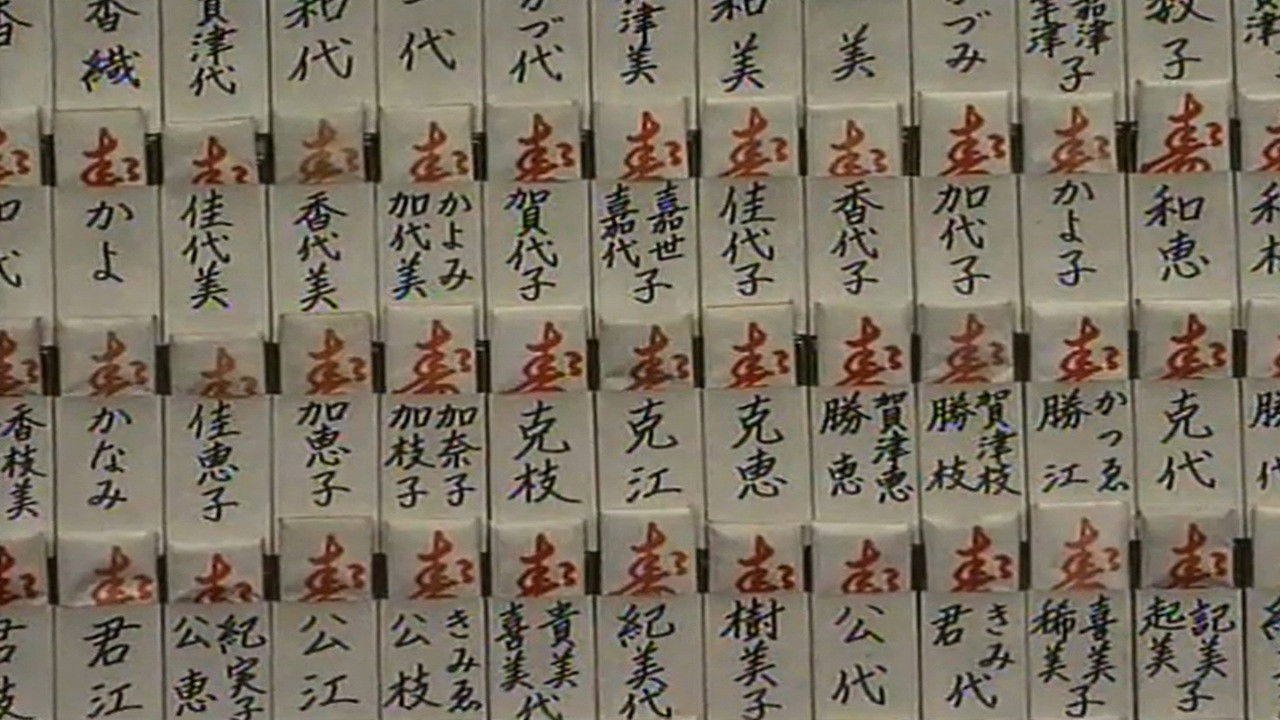 香織
賀津代
和代
代
かづ代
津美
和美
美
かづみ
津 嘉津子
教子
寿
かよ
佳代美
香代美
かよみ 加代美
賀代子
嘉世子 嘉代
佳代子
香代子
加代子
かよ子
和恵
寿
香枝美
かなみ
佳恵子
加恵子
加奈子 加枝子
克枝
克江
克恵
賀津恵 勝恵
賀津枝 勝枝
かつゑ 勝江
克代
寿
君枝
君江
紀実子 公恵
公江
きみゑ 公枝
貴美代 喜美
紀美代
樹美子
公代
きみ代 君
喜美子 稀美
記美子 起美